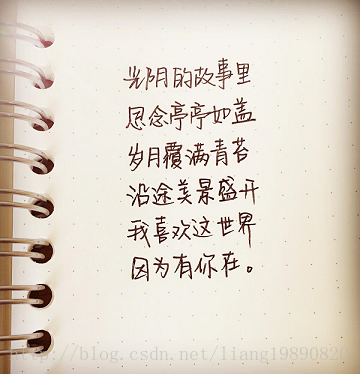 光阴的故事里
思念亭亭如盖
岁月覆满青苔
沿途美景盛开
我喜欢这世界
因为有你在。
http://blog.csdn.net/liang19890820